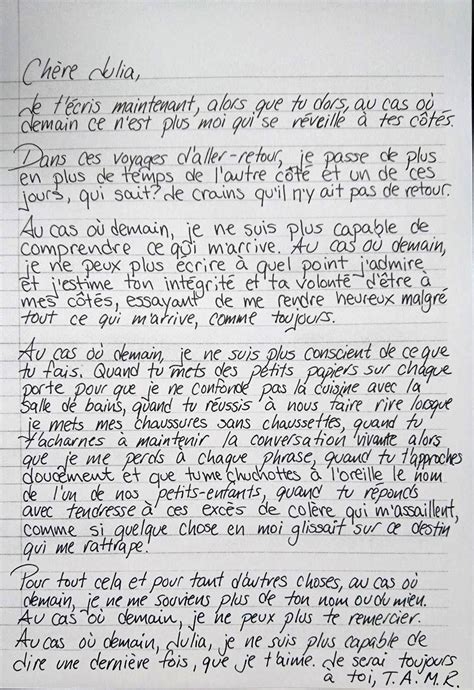 Chère Julia,
Je t'écris maintenant, alors que tu dors, au cas où
demain ce n'est plus moi qui se réveille à tes côtés.
Dans ces voyages d'aller-retour, je passe de plus
en plus de temps de l'autre côté et un de ces
jours, qui sait? Je crains qu'il n'y ait pas de retour.
Au cas où demain, je ne suis plus capable de
comprendre ce qui m'arrive. Au cas où demain,
je ne peux plus écrire à quel point j'admire
et j'estime ton intégrité et ta volonté d'être à
mes côtés, essayant de me rendre heureux malgré
tout ce qui m'arrive, comme toujours.
Au cas où demain, je ne suis plus conscient de ce que
tu fais. Quand tu mets des petits papiers sur chaque
porte pour que je ne confonde pas la cuisine avec la
salle de bains, quand tu réussis à nous faire rire lorsque
je mets mes chaussures sans chaussettes, quand tu
t'acharnes à maintenir la conversation vivante alors
que je me perds à chaque phrase, quand tu t'approches
doucement et que tu me chuchottes à l'oreille le nom
de l'un de nos petits-enfants, quand tu réponds
avec tendresse à ces excès de colère qui m'assaillent,
comme si quelque chose en moi glissait sur ce destin
qui me rattrape.
Pour tout cela et pour tant d'autres choses, au cas où
demain, je ne me souviens plus de ton nom ou du mien.
Au cas où demain, je ne peux plus te remercier.
Au cas où demain, Julia, je ne suis plus capable de
dire une dernière fois, que je t'aime. Je serai toujours
à toi, T.A.M.R.